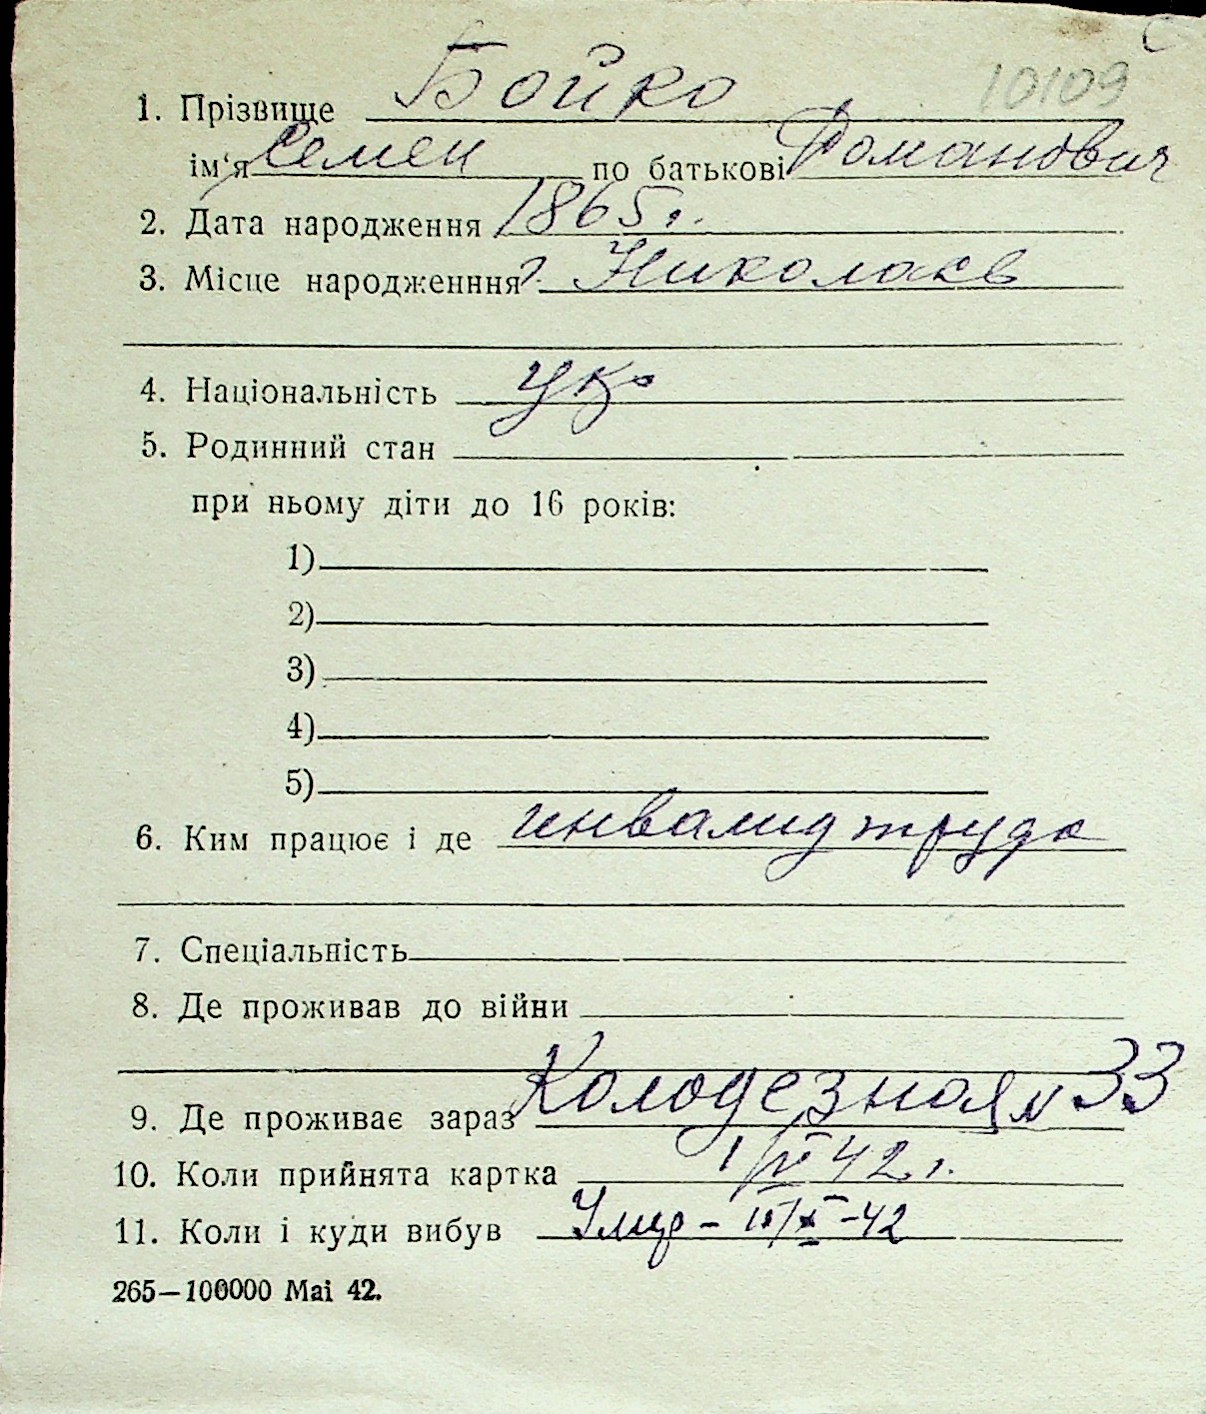 С
10109
1. Прізвище Бойко
ім'я Семен по батькові Романович
2. Дата народження 1865 г.
3. Місце народженння г. Николаев
4. Національність укр
5. Родинний стан
при ньому діти до 16 років:
1)
2)
3)
4)
5)
6. Ким працює і де инвалид труда
7. Спеціальність
8. Де проживав до війни
9. Де проживає зараз Колодезная № 33
10. Коли прийнята картка 42 г.
11. Коли і куди вибув Умер - -42
265—100000 Mai 42.